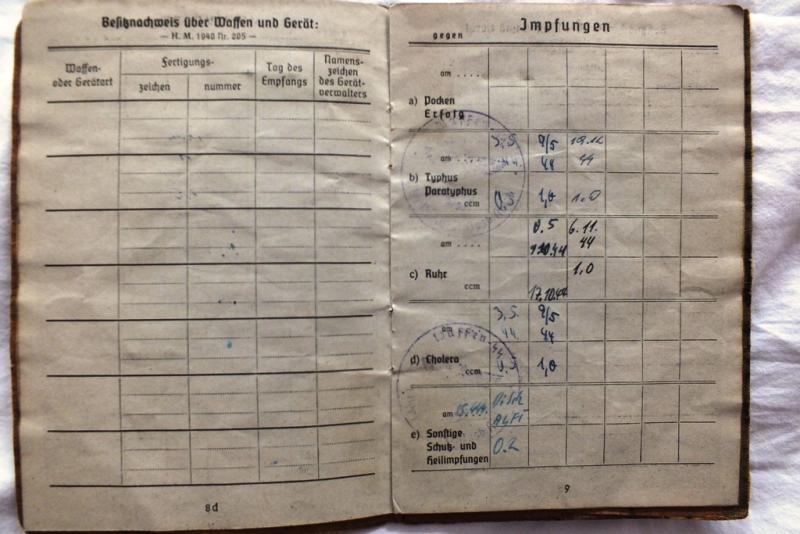 Besitznachweis über Waffen und Gerät:
— H. M. 1940 Nr. 205 —
Waffen-
oder Gerätart
Fertigungs-
zeichen
nummer
Tag des
Empfangs
Namens-
zeichen
des Gerät-
verwalters
8d
Impfungen
gegen
am ....
a) Pocken
Erfolg
am
3.5.
9/5
44
44
b) Typhus
Paratyphus
ccm
0,5
1,0
1.0
am ....
0.5
6.11.
44
c) Ruhr
1,0
ccm
17.10.44
3.5.
9/5
44
44
Waffen-
d) Cholera
ccm
0.5
1,0
am
e) Sonstige
Schutz- und
Heilimpfungen
0.2
9